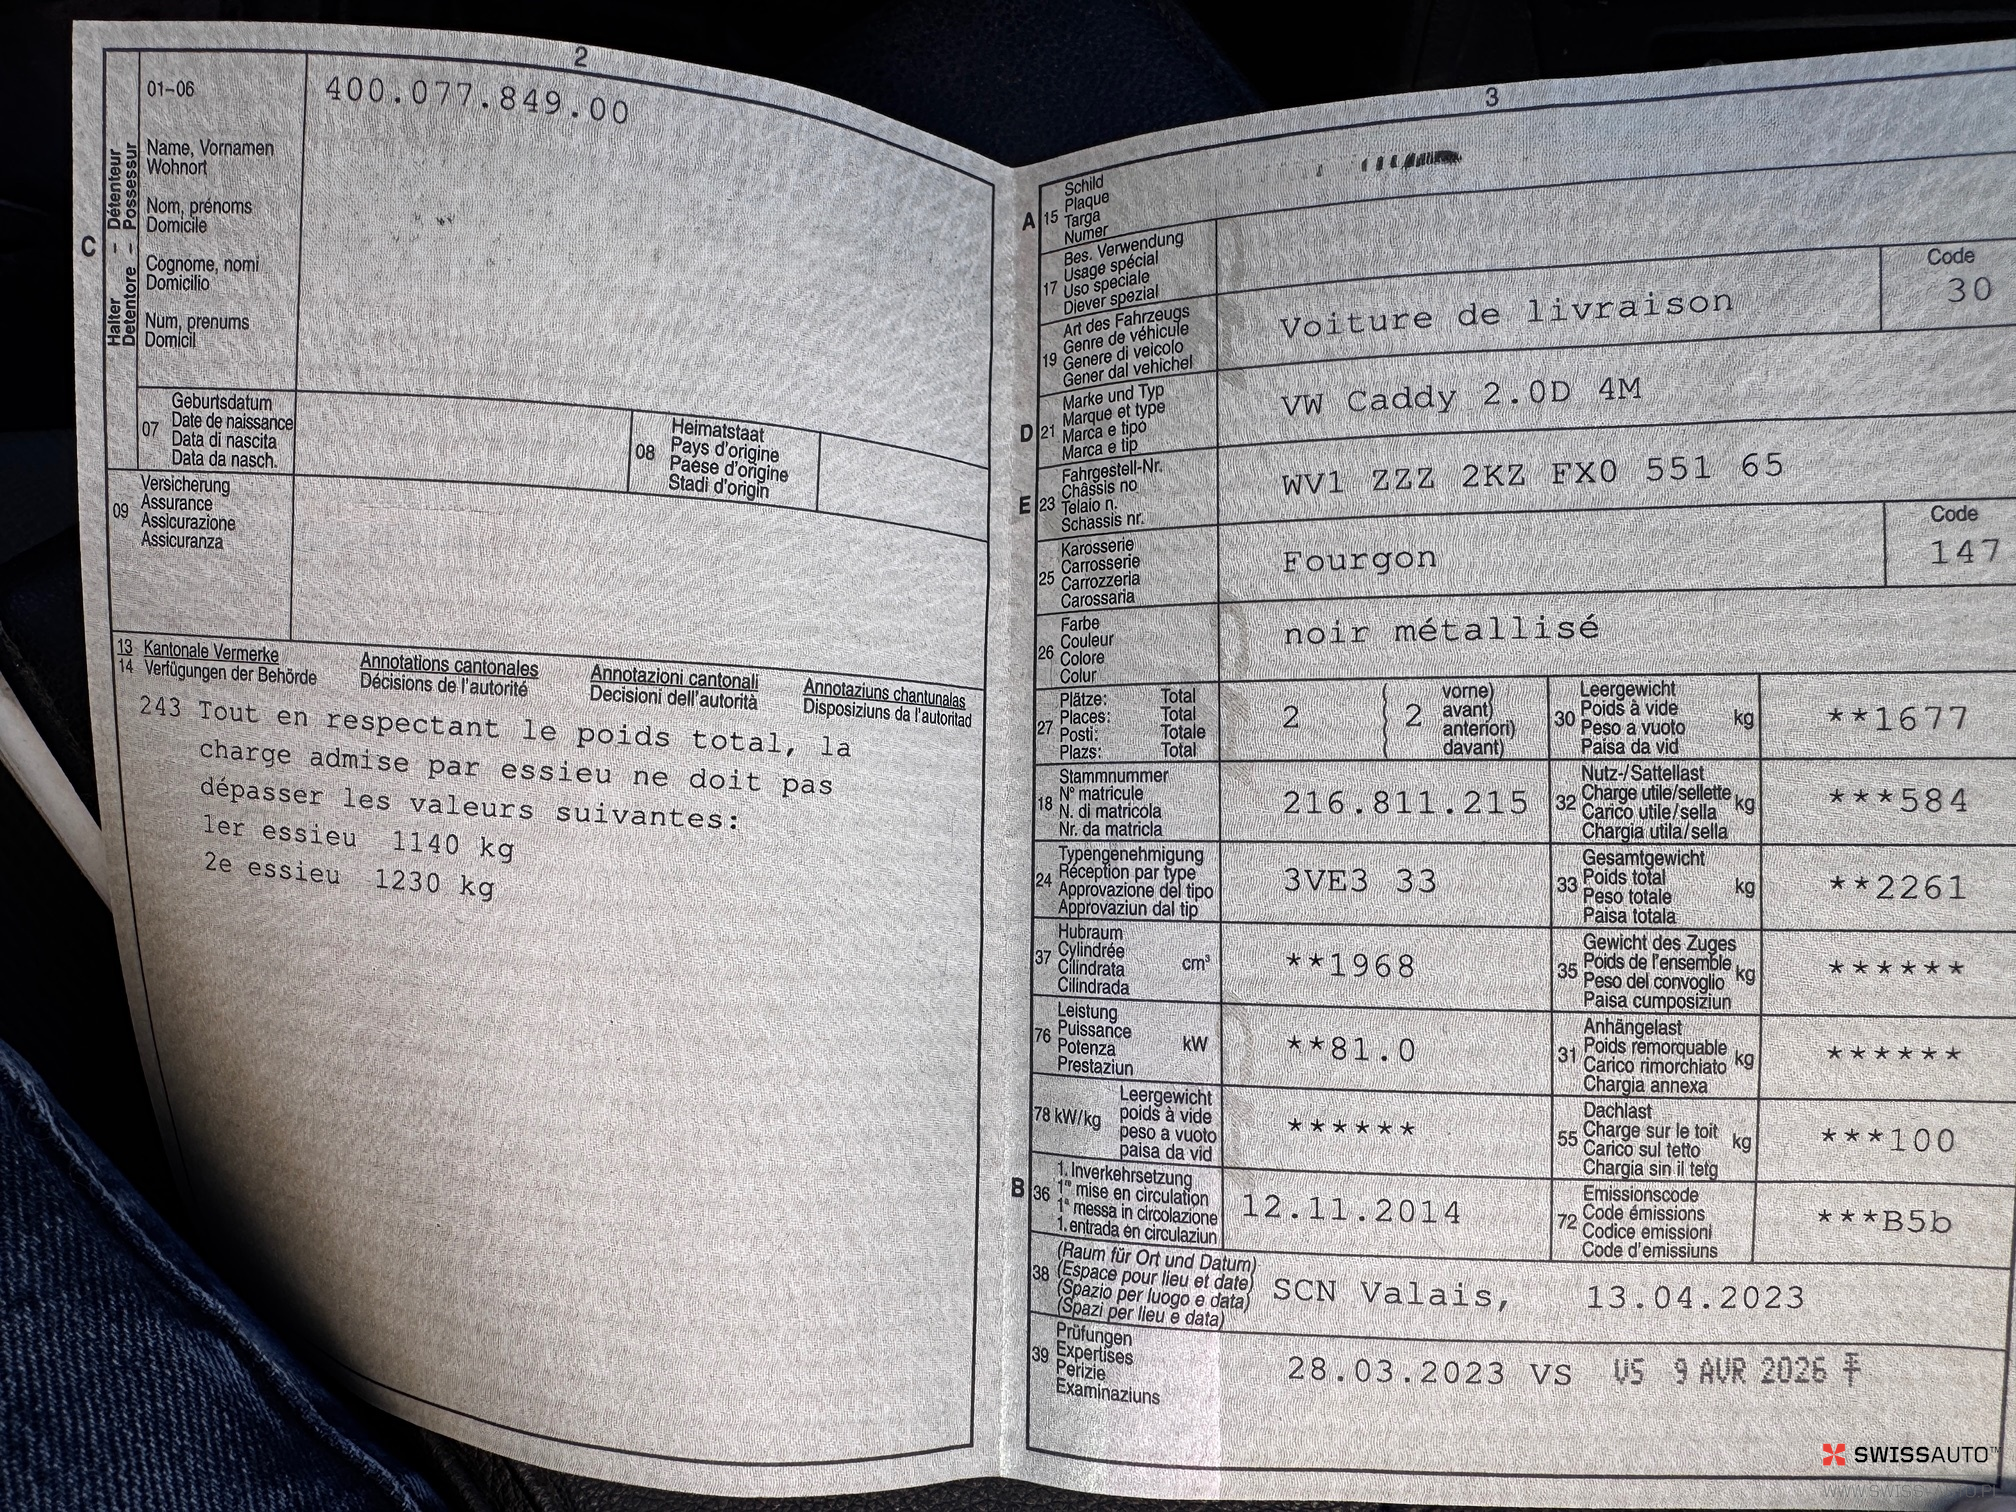 2
C
Halter – Détenteur
Detentore – Possessur
01–06
400.077.849.00
Name, Vornamen
Wohnort
Nom, prénoms
Domicile
Cognome, nomi
Domicilio
Num, prenums
Domicil
07
Geburtsdatum
Date de naissance
Data di nascita
Data da nasch.
08
Heimatstaat
Pays d'origine
Paese d'origine
Stadi d'origin
09
Versicherung
Assurance
Assicurazione
Assicuranza
13 Kantonale Vermerke
14 Verfügungen der Behörde
Annotations cantonales
Décisions de l'autorité
Annotazioni cantonali
Decisioni dell'autorità
Annotaziuns chantunalas
Disposiziuns da l'autoritad
243 Tout en respectant le poids total, la
charge admise par essieu ne doit pas
dépasser les valeurs suivantes:
1er essieu 1140 kg
2e essieu 1230 kg
3
A 15
Schild
Plaque
Targa
Numer
17
Bes. Verwendung
Usage spécial
Uso speciale
Diever spezial
19
Art des Fahrzeugs
Genre de véhicule
Genere di veicolo
Gener dal vehichel
Voiture de livraison
Code
30
D 21
Marke und Typ
Marque et type
Marca e tipo
Marca e tip
VW Caddy 2.0D 4M
E 23
Fahrgestell-Nr.
Châssis no
Telaio n.
Schassis nr.
WV1 ZZZ 2KZ FX0 551 65
25
Karosserie
Carrosserie
Carrozzeria
Carossaria
Fourgon
Code
147
26
Farbe
Couleur
Colore
Colur
noir métallisé
27
Plätze: Total
Places: Total
Posti: Totale
Plazs: Total
2
2
vorne)
avant)
anteriori)
davant)
30
Leergewicht
Poids à vide
Peso a vuoto
Paisa da vid
kg
**1677
18
Stammnummer
N° matricule
N. di matricola
Nr. da matricla
216.811.215
32
Nutz-/Sattellast
Charge utile/sellette
Carico utile/sella
Chargia utila/sella
kg
***584
24
Typengenehmigung
Réception par type
Approvazione del tipo
Approvaziun dal tip
3VE3 33
33
Gesamtgewicht
Poids total
Peso totale
Paisa totala
kg
**2261
37
Hubraum
Cylindrée
Cilindrata
Cilindrada
cm³
**1968
35
Gewicht des Zuges
Poids de l'ensemble
Peso del convoglio
Paisa cumposiziun
kg
******
76
Leistung
Puissance
Potenza
Prestaziun
kW
**81.0
31
Anhängelast
Poids remorquable
Carico rimorchiato
Chargia annexa
kg
******
78 kW/kg
Leergewicht
poids à vide
peso a vuoto
paisa da vid
******
55
Dachlast
Charge sur le toit
Carico sul tetto
Chargia sin il tetg
kg
***100
B 36
1. Inverkehrsetzung
1re mise en circulation
1a messa in circolazione
1. entrada en circulaziun
12.11.2014
72
Emissionscode
Code émissions
Codice emissioni
Code d'emissiuns
***B5b
38
(Raum für Ort und Datum)
(Espace pour lieu et date)
(Spazio per luogo e data)
(Spazi per lieu e data)
SCN Valais, 13.04.2023
39
Prüfungen
Expertises
Perizie
Examinaziuns
28.03.2023 VS VS 9 AVR 2026
SWISSAUTO™